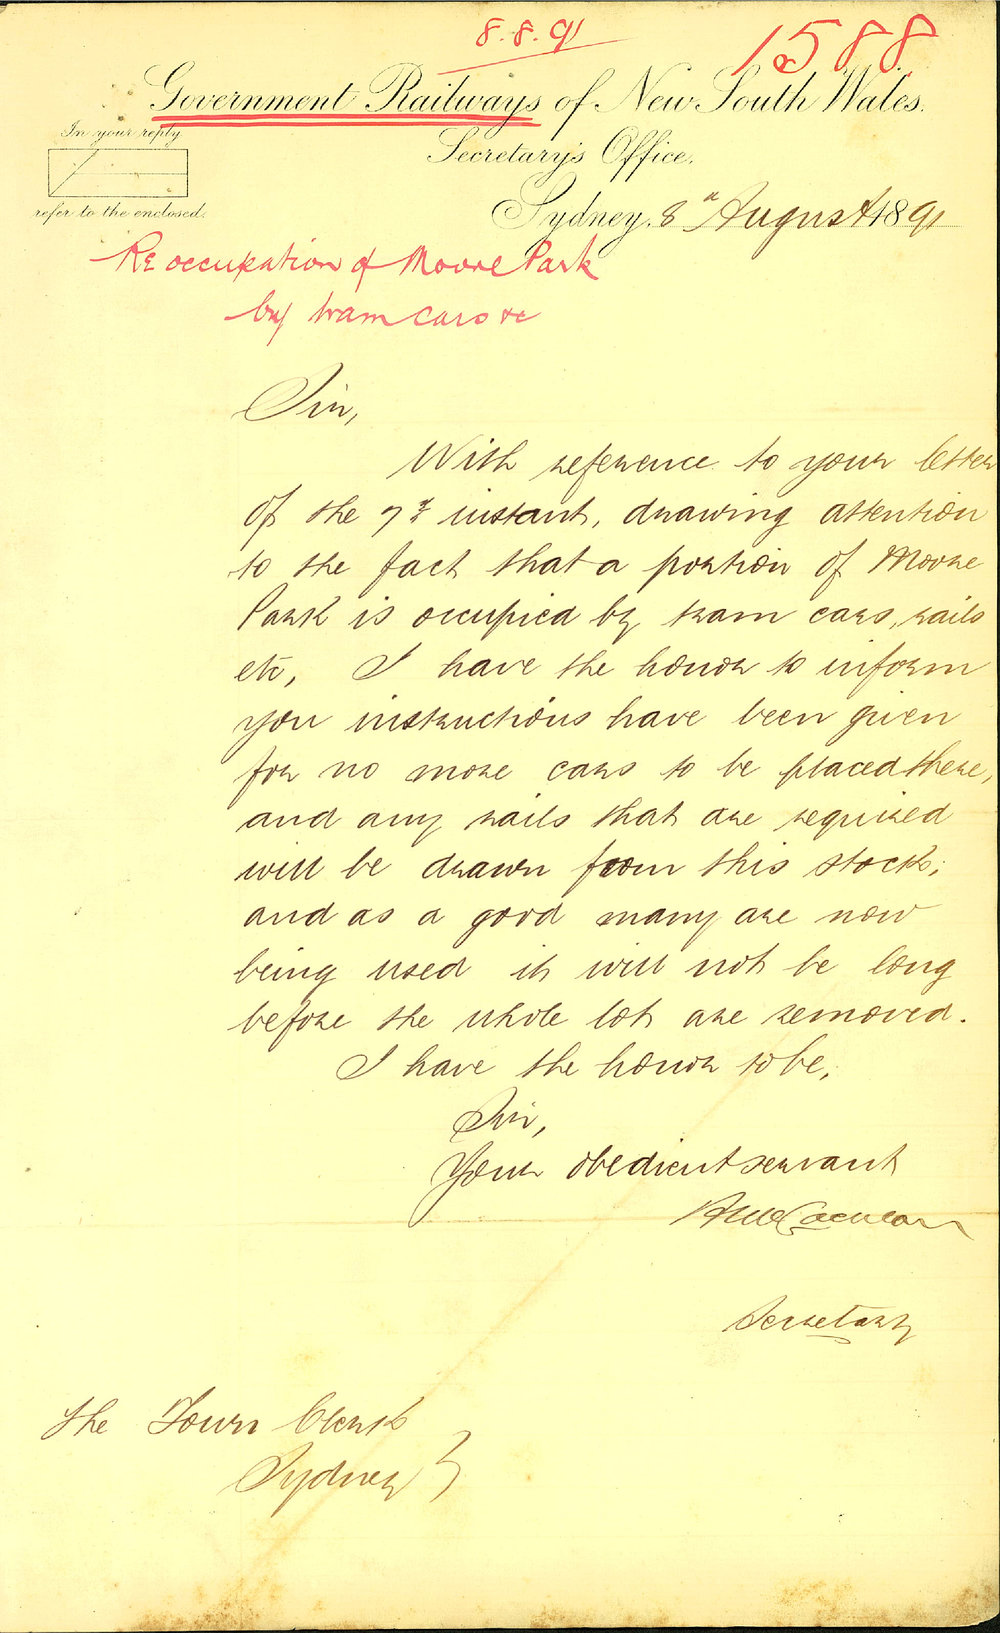 8.8.91
1588
Government Railways of New South Wales.
In your reply
Secretary's Office.
refer to the enclosed.
Sydney, 8th August 1891
Re occupation of Moore Park
by tram cars &c
Sir,
With reference to your letter
of the 7th instant, drawing attention
to the fact that a portion of Moore
Park is occupied by tram cars, rails
etc, I have the honor to inform
you instructions have been given
for no more cars to be placed there,
and any rails that are required
will be drawn from this stock;
and as a good many are now
being used it will not be long
before the whole lot are removed.
I have the honor to be,
Sir,
Your obedient servant
Secretary
The Town Clerk
Sydney